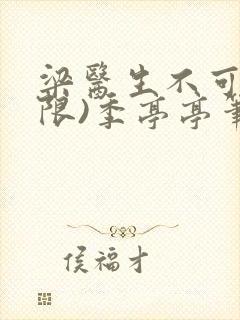 梁醫生不可
限)季亭亭筆
侯福才